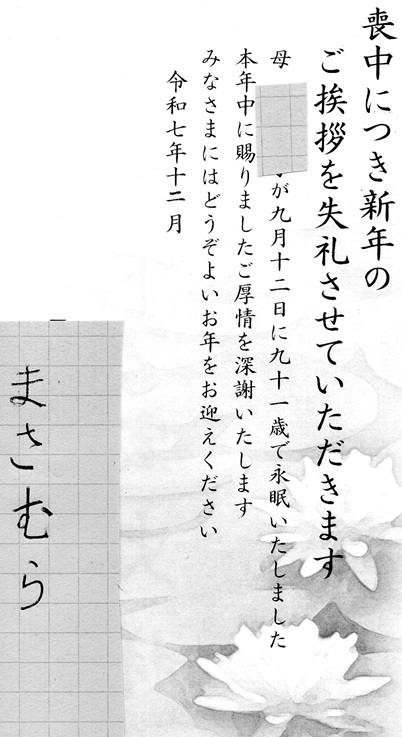 喪中につき新年の
ご挨拶を失礼させていただきます
母
が九月十二日に九十一歳で永眠いたしました
本年中に賜りましたご厚情を深謝いたします
みなさまにはどうぞよいお年をお迎えください
令和七年十二月
まさむら